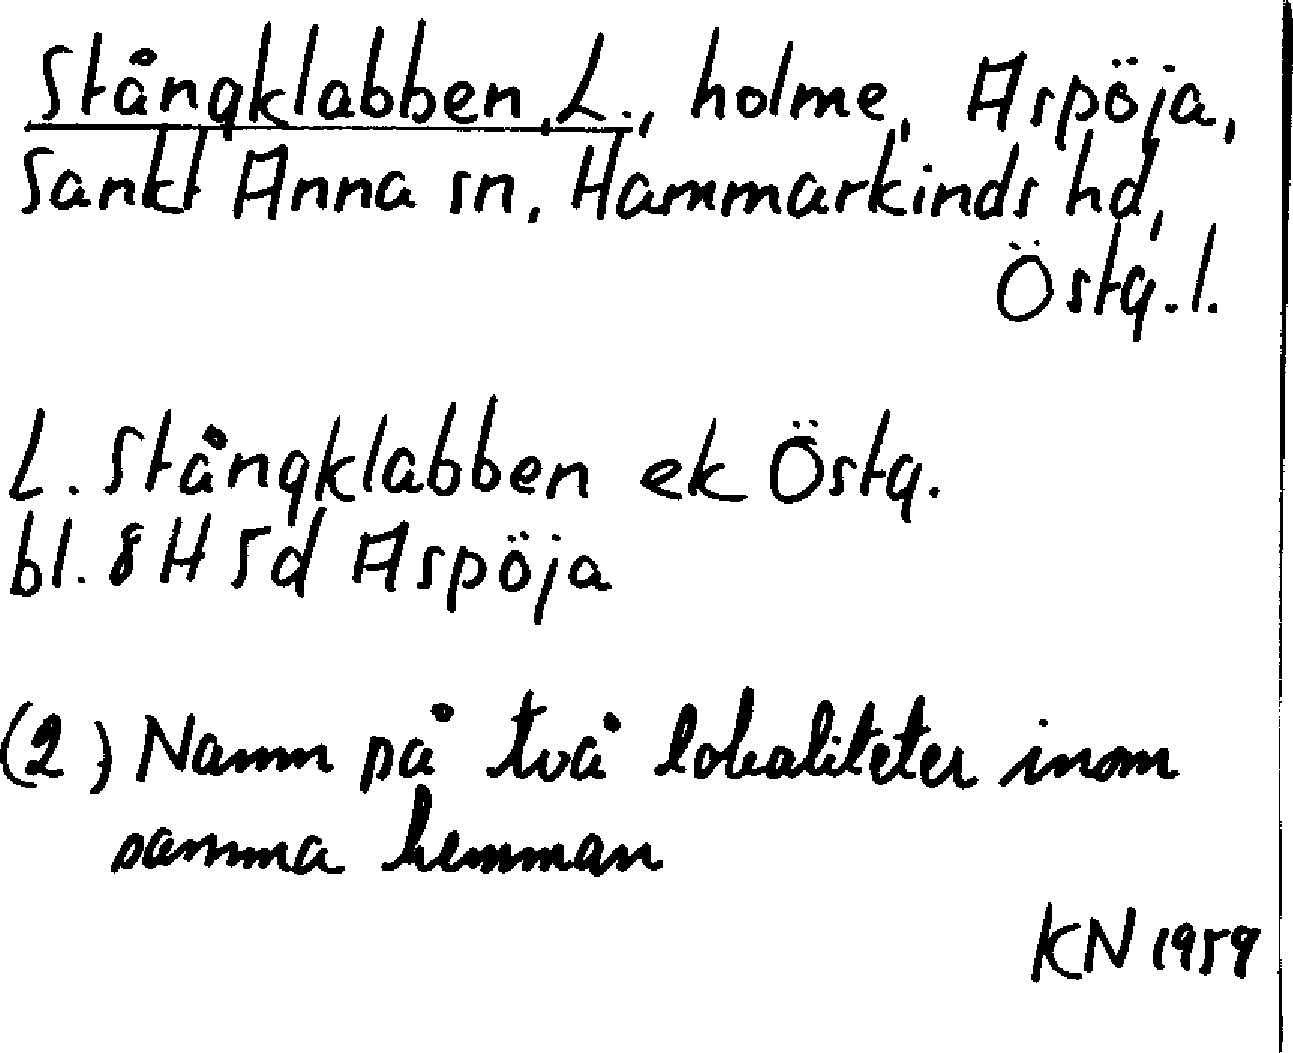 Stångklabben, L., holme, Aspöja,
Sankt Anna sn, Hammarkinds hd,
Östg.l.
L. Stångklabben ek Östg.
bl. 8 H 5d Aspöja
(2) Namn på två lokaliteter inom
samma hemman
KN 1959